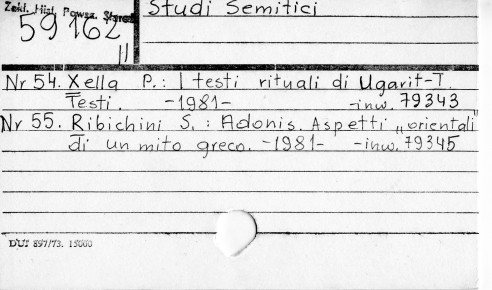 Zakł. Hist. Powsz. Staroż.
Studi Semitici
59162
II
Nr 54. Xella P.: I testi rituali di Ugarit-T.
Testi. -1981- -inw. 79343
Nr 55. Ribichini S.: Adonis. Aspetti „orientali”
di un mito greco. -1981- -inw. 79345
DUJ 897/73. 15000